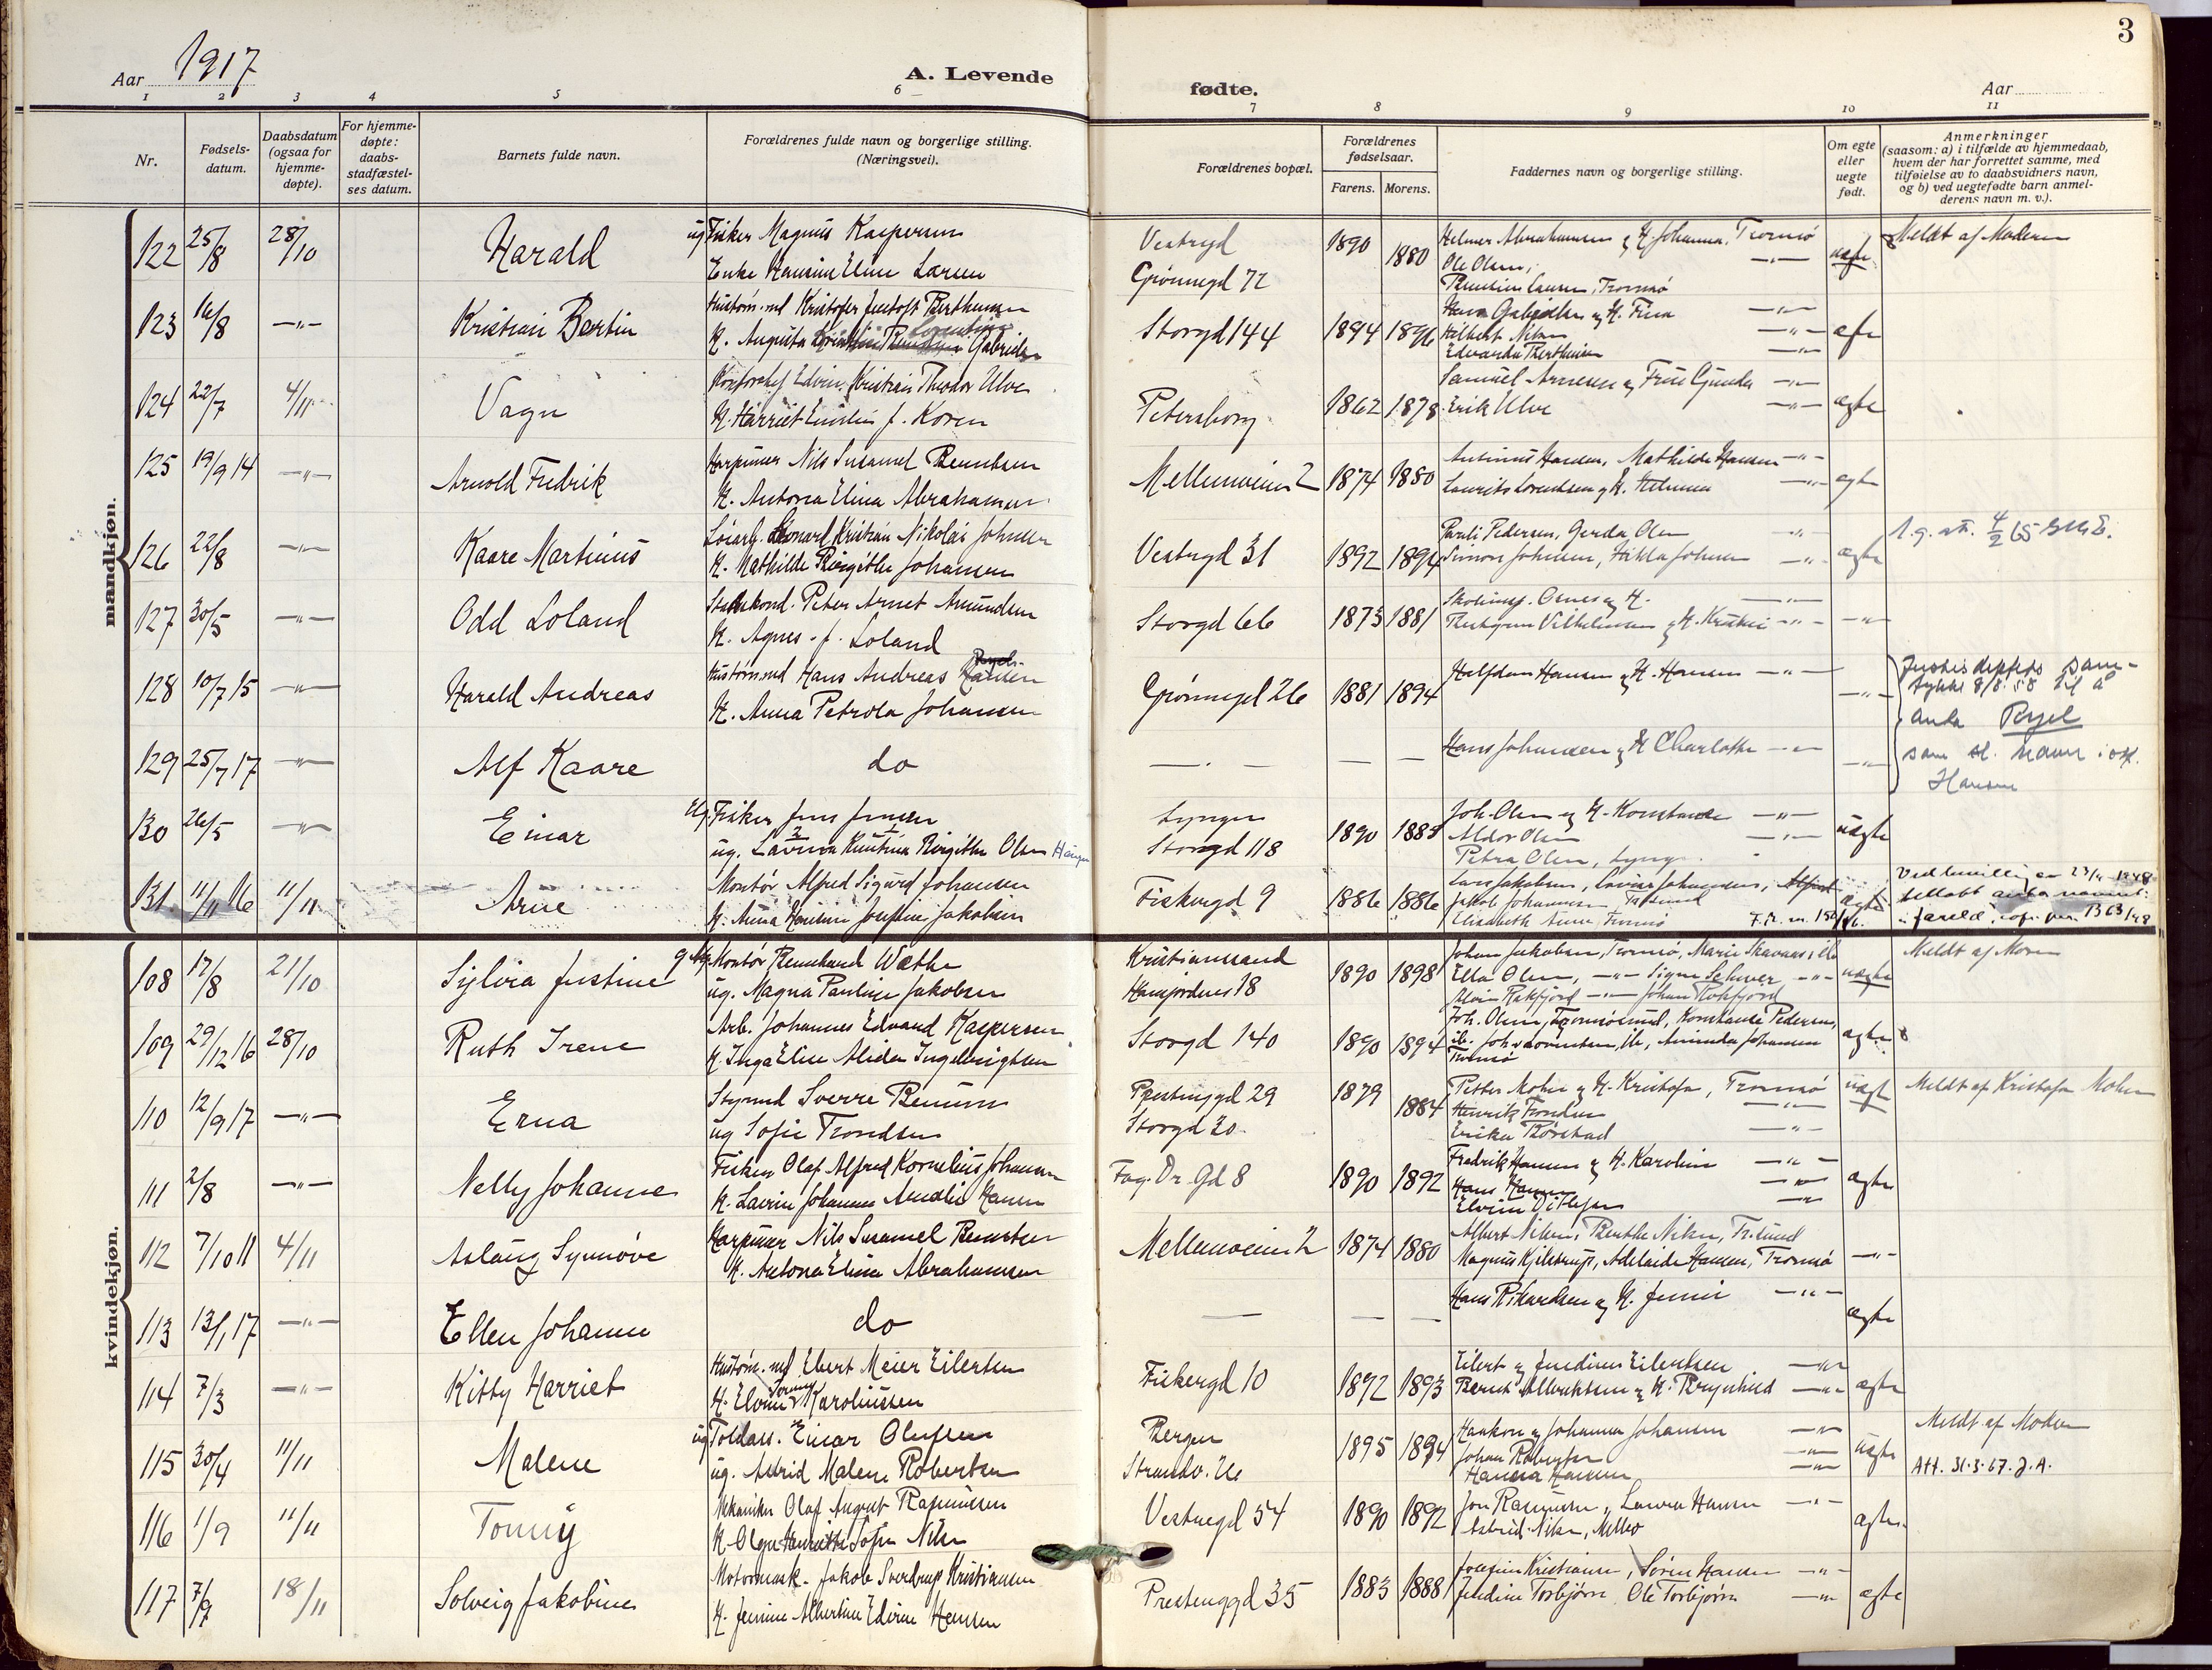 3
Aar 1917
A. Levende
fødte.
Aar
1 2 3 4 5 6 7 8 9 10 11
Nr.
Fødsels-
datum.
Daabsdatum
(ogsaa for
hjemme-
døpte).
For hjemme-
døpte:
daabs-
stadfæstel-
ses datum.
Barnets fulde navn.
Forældrenes fulde navn og borgerlige stilling.
(Næringsvei).
Forældrenes bopæl.
Forældrenes
fødselsaar.
Farens. Morens.
Faddernes navn og borgerlige stilling.
Om egte
eller
uegte
født.
Anmerkninger
(saasom: a) i tilfælde av hjemmedaab,
hvem der har forrettet samme, med
tilføielse av to daabsvidners navn,
og b) ved uegtefødte barn anmel-
derens navn m. v.).
mandkjøn.
122 25/8 28/10 Harald
ug Fisker Magnus Kaspersen
Enke Hansine Eline Larsen
Vestregd
Grønnegd 72
1890 1880
Helmer Abrahamsen og H. Johanna, Tromsø
Ole Olsen, —"—
Larsen, Tromsø
uegte
Meldt af Moderen
123 16/8 —"— Kristian Bertin
Hustøm.md Kristofer Berthinsen
H. Augusta Lorentine Gabrielsen
Storgd 144
1894 1896
Hans Gabrielsen og H. Fina —"—
Hilbert Nilsen —"—
Edvarda Berthinsen —"—
egte
124 22/7 4/11 Vagn
Kontorchef Edvin Kristian Theodor Ulve
H. Harriet Emilie f. Koren
Petersborg
1862 1878
Samuel Arnesen og Frue Gunda —"—
Erik Ulve —"—
ægte
125 19/9 14 —"— Arnold Fredrik
Harpuner Nils Samuel Berntsen
H. Antona Elina Abrahamsen
Mellemveien 2
1874 1880
Antinius Hansen, Mathilde Hansen —"—
Laurits Lorentsen og H. —"—
egte
126 22/8 —"— Kaare Martinus
Løsarb. Leonard Kristian Nikolai Johnsen
H. Mathilde Birgithe Johansen
Vestregd 31
1892 1894
Parli Pedersen, Gerda Olsen —"—
Simon Johnsen, Hilda Johnsen —"—
ægte
4/2 65
127 30/5 —"— Odd Loland
Peter Arnet Amundsen
H. Agnes f. Loland
Storgd 66
1873 1881
Skoleinsp. og H. —"—
Vilhelmsen og H. —"—
—"—
128 10/7 15 —"— Harald Andreas
Hustømmd Hans Andreas Hansen
H. Anna Petrola Johansen
Grønnegd 26
1881 1894
Halfdan Hansen og H. Hansen —"—
—"—
Justisdeptets sam-
tykke 8/8 58 til å
anta Ryel
som sl. navn i st. f.
Hansen
129 25/7 17 —"— Alf Kaare
do
— " —
— —
Hans Johansen og H Charlotte —"—
—"—
130 26/5 —"— Einar
Ug. Fisker Jens Jensen
ug. Lavina Kristina Birgithe Olsen
Lyngen
Storgd 118
1890 1885
Joh. Olsen og H. Konstanse —"—
Aldor Olsen —"—
Petra Olsen, Lyngen
uegte
131 11/11 16 11/11 Arne
Montør Alfred Sigurd Johansen
H. Anna Hansine Josefine Jakobsen
Fiskergd 9
1886 1886
Lars Jakobsen,
Jakob Johannesen,
Elisabeth Tromsø
ægte
kvindekjøn.
108 17/8 21/10 Sylvia Justine
Ug. Montør Wæthe
ug. Magna Pauline Jakobsen
Kristianssand
Havfjordnes 18
1890 1898
Johan Jakobsen, Tromsø, Marie
Ella Olsen, —"— Signe —"—
Alvin Rakfjord —"— Johan Rakfjord
uægte
Meldt af Moren
109 29/12 16 28/10 Ruth Irene
Arb. Johannes Edvard Kaspersen
H. Inga Elise Alida Ingebrigtsen
Storgd 140
1890 1894
Joh. Olsen, Tromsøsund, Konstanse Pedersen,
Aminda Johansen
Tromsø
ægte
110 12/9 17 —"— Erna
Styrmd Sverre
ug Sofie Trondsen
Prestenggd 29
Storgd 20
1879 1884
Petter Moen og H. Kristofa, Tromsø
Henrik Trondsen —"—
Erika Rørstad —"—
uægt
Meldt af Kristofa Moen
111 2/8 —"— Nelly Johanne
Fisker Olaf Alfred Kornelius Johansen
H. Lavine Johanna Amalie Hansen
Fog. Dr. Gd 8
1890 1892
Fredrik Hansen og H. Karoline —"—
Hans Hansen —"—
Elvine Ditlefsen —"—
ægte
112 7/10 11 4/11 Aslaug Synnøve
Harpuner Nils Samuel Berntsen
H. Antona Elina Abrahamsen
Mellemveien 2
1874 1880
Albert Nilsen, Berthe Nilsen, Tr.sund
Magnus Kjelstrup, Adelaide Hansen, Tromsø
—"—
113 13/1 17 —"— Ellen Johanne
do
—
— —
Hans Rikardsen og H. Jenni —"—
ægte
114 7/3 —"— Kitty Harriet
Hustøm. md Ebert Meier Eilertsen
H. Elvine Karoliussen
Fiskergd 10
1892 1893
Eilert og Jendine Eilertsen —"—
Bernt Albriktsen og H. Brynhild —"—
ægte
115 30/4 11/11 Malene
ug Toldass. Einar Olufsen
ug. Astrid Malene Robertsen
Bergen
Strandv. 26
1895 1894
Haakon og Johanna Johansen —"—
Johan Robertsen —"—
Hanna Hansen —"—
uægte
Meldt af Moderen
Att. 31.3.67. J.A.
116 1/9 11/11 Tonny
Mekaniker Olaf August Rasmussen
H. Olga Henriette Sofie Nilsen
Vestregd 54
1890 1892
Jon Rasmussen, Laura Hansen —"—
Astrid Nilsen, Melbo
ægte
117 7/9 18/11 Solveig Jakobine
Motormask. Jakob Sverdrup Kristiansen
H. Jennine Albertine Edvine Hansen
Prestenggd 35
1883 1888
Josefine Kristiansen, Søren Hansen —"—
Jendine Torbjørn Ole Torbjørn —"—
ægte